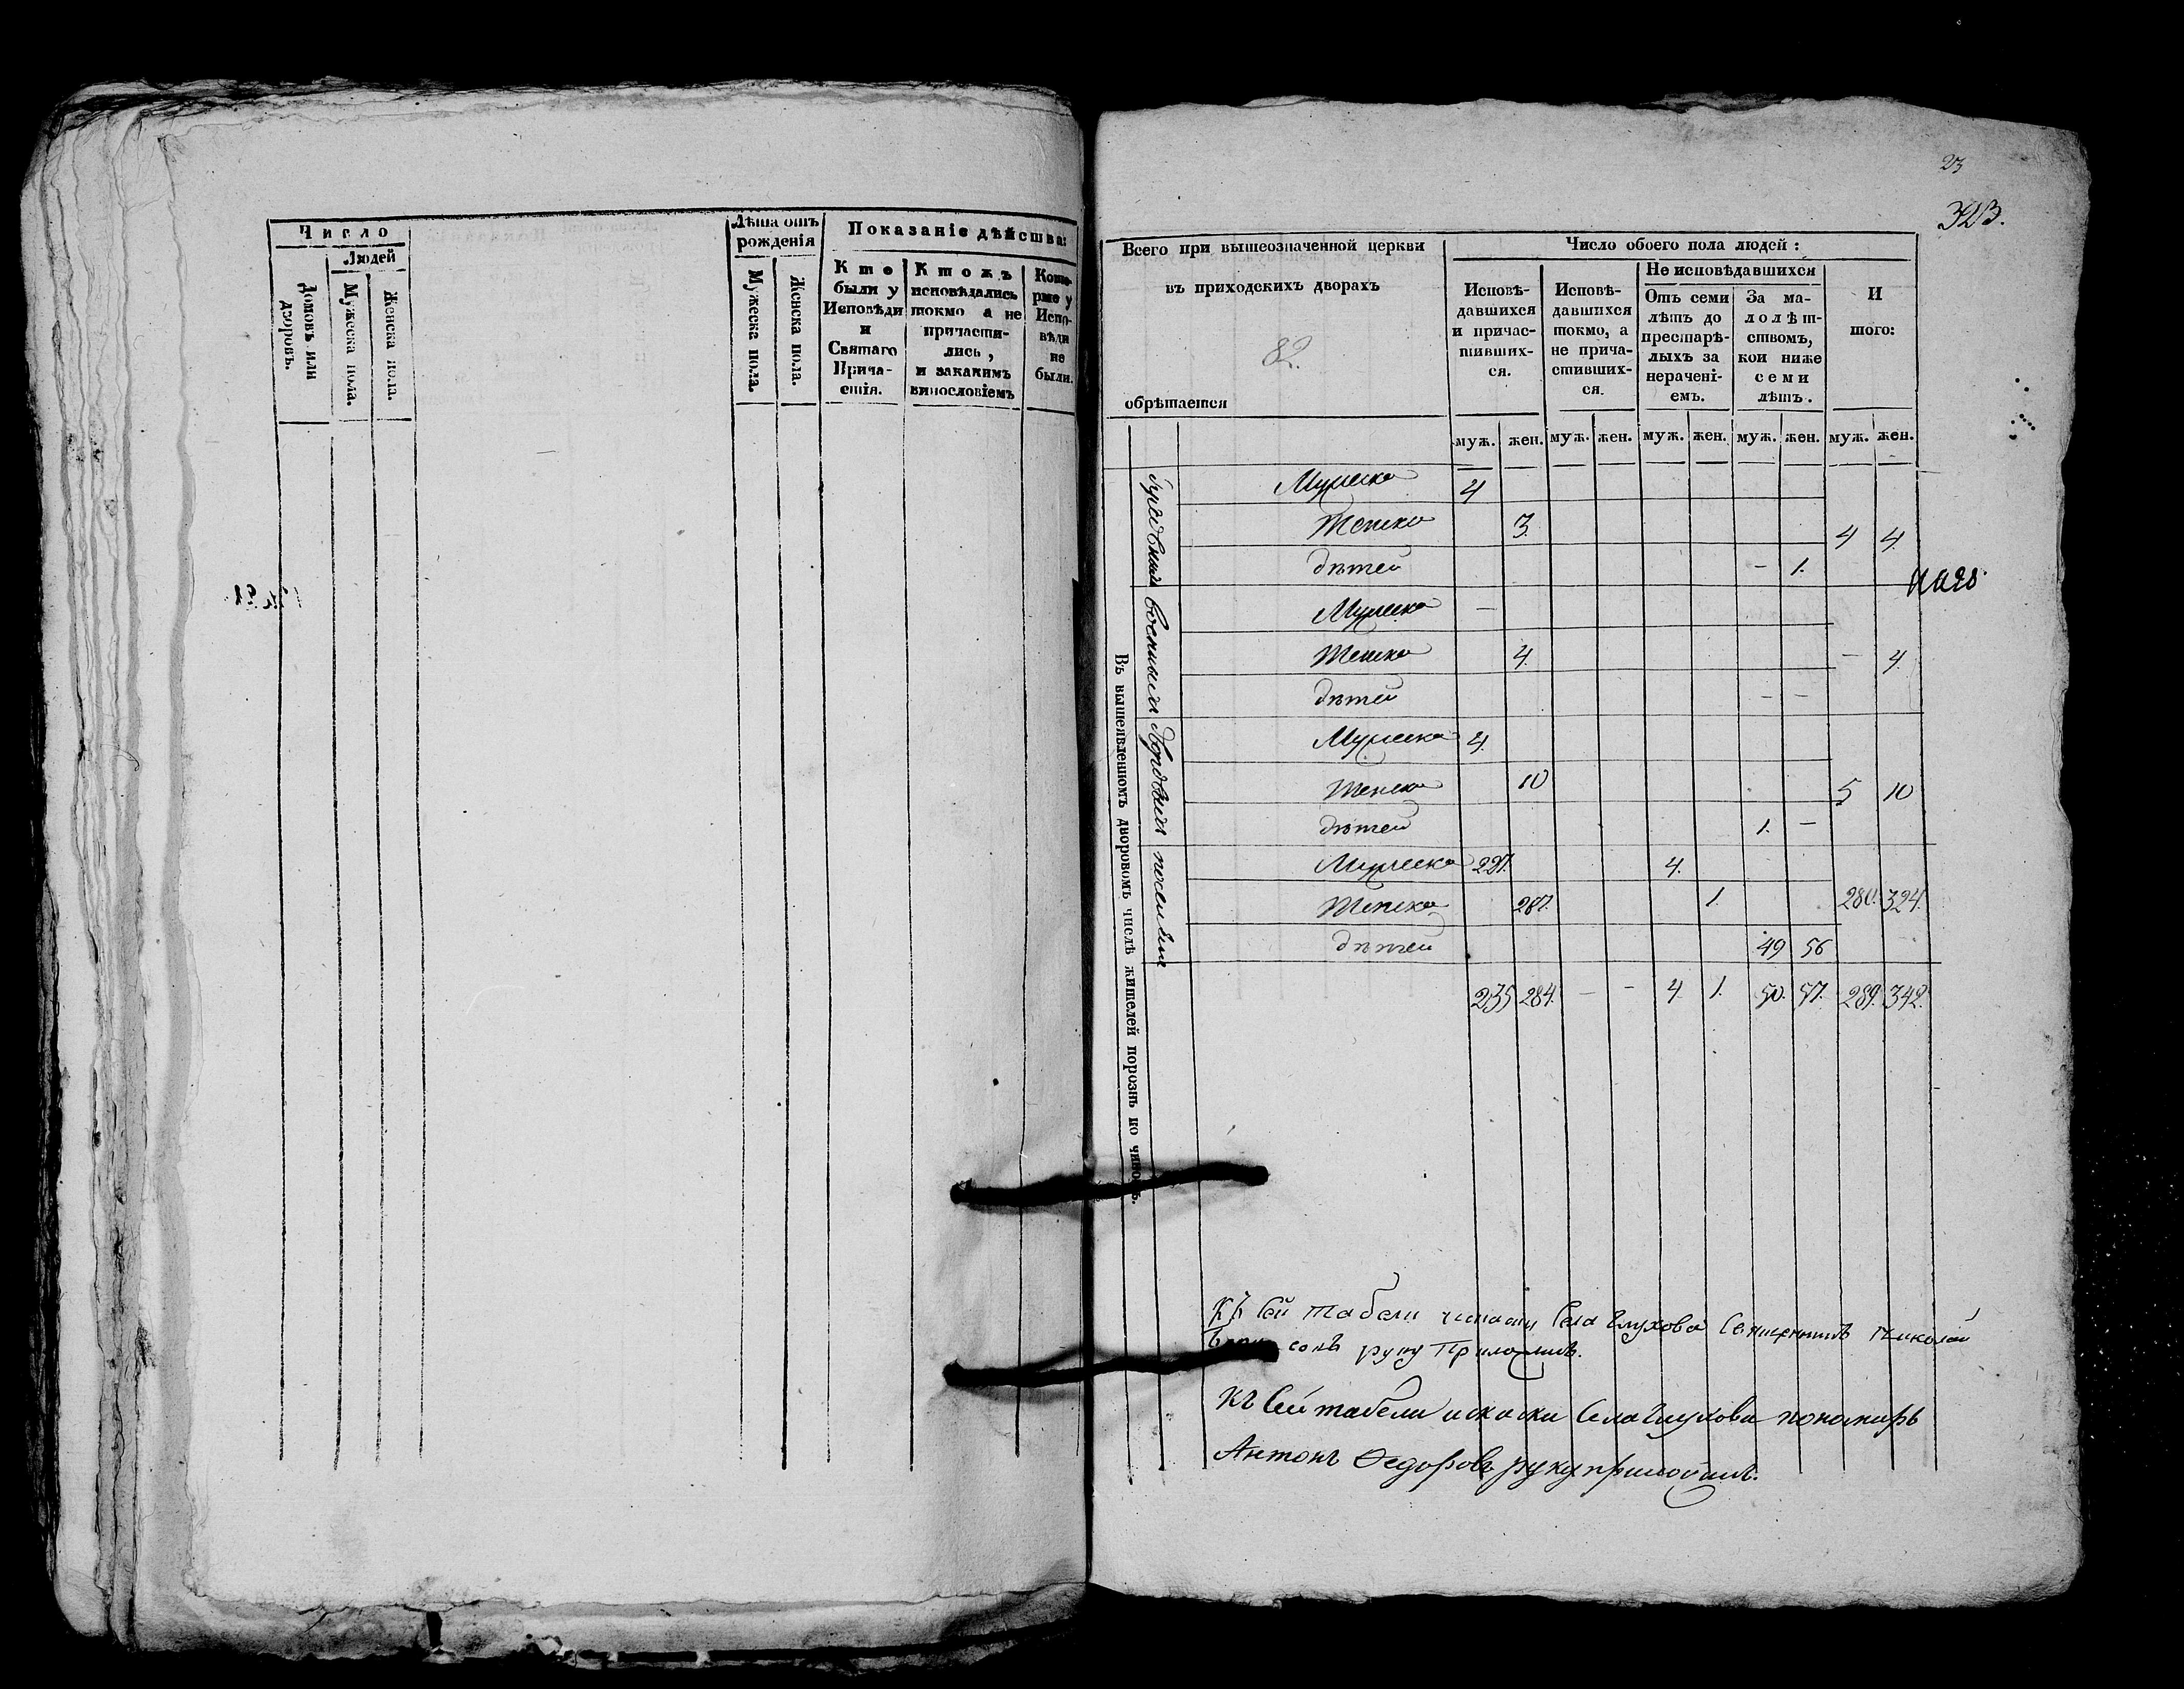 Число
Людей
Домовъ или дворовъ.
Мужеска пола.
Женска пола.
Лѣта отъ рожденія
Мужеска пола.
Женска пола.
Показаніе дѣйства:
Кто были у Исповѣди и Святаго Прича-стія.
Ктожъ исповѣдались токмо а не причасти-лись, и закакимъ винословіемъ
Кото-рые у Испо-вѣди не были.
23
323.
Всего при вышеозначенной церкви
въ приходскихъ дворахъ
82.
обрѣтается
Число обоего пола людей:
Исповѣ-давшихся и причас-тивших-ся.
Исповѣ-давшихся токмо, а не прича-стивших-ся.
Не исповѣдавшихся
Отъ семи лѣтъ до престарѣ-лыхъ за нерачені-емъ.
За ма-лолѣт-ствомъ, кои ниже семи лѣтъ.
И того:
муж. жен. муж. жен. муж. жен. муж. жен. муж. жен.
Въ вышеявленномъ дворовомъ числѣ жителей порознь по чиномъ.
Мужеска 4
Женска 3. 4 4.
дѣтей – 1.
Мужеска –
Женска 4. – 4.
дѣтей – –
Мужеска 4.
Женска 10 5 10
дѣтей 1. –
Мужеска 227. 4.
Женска 267. 1. 280. 324.
дѣтей 49 56
235 284. – – 4. 1. 50. 57. 289. 342.
Къ сей табели Села Глухова Священникъ Николай
руку Приложилъ.
Къ Сей табели и Села Глухова пономарь
Антонъ Ѳедоровъ руку приложилъ.